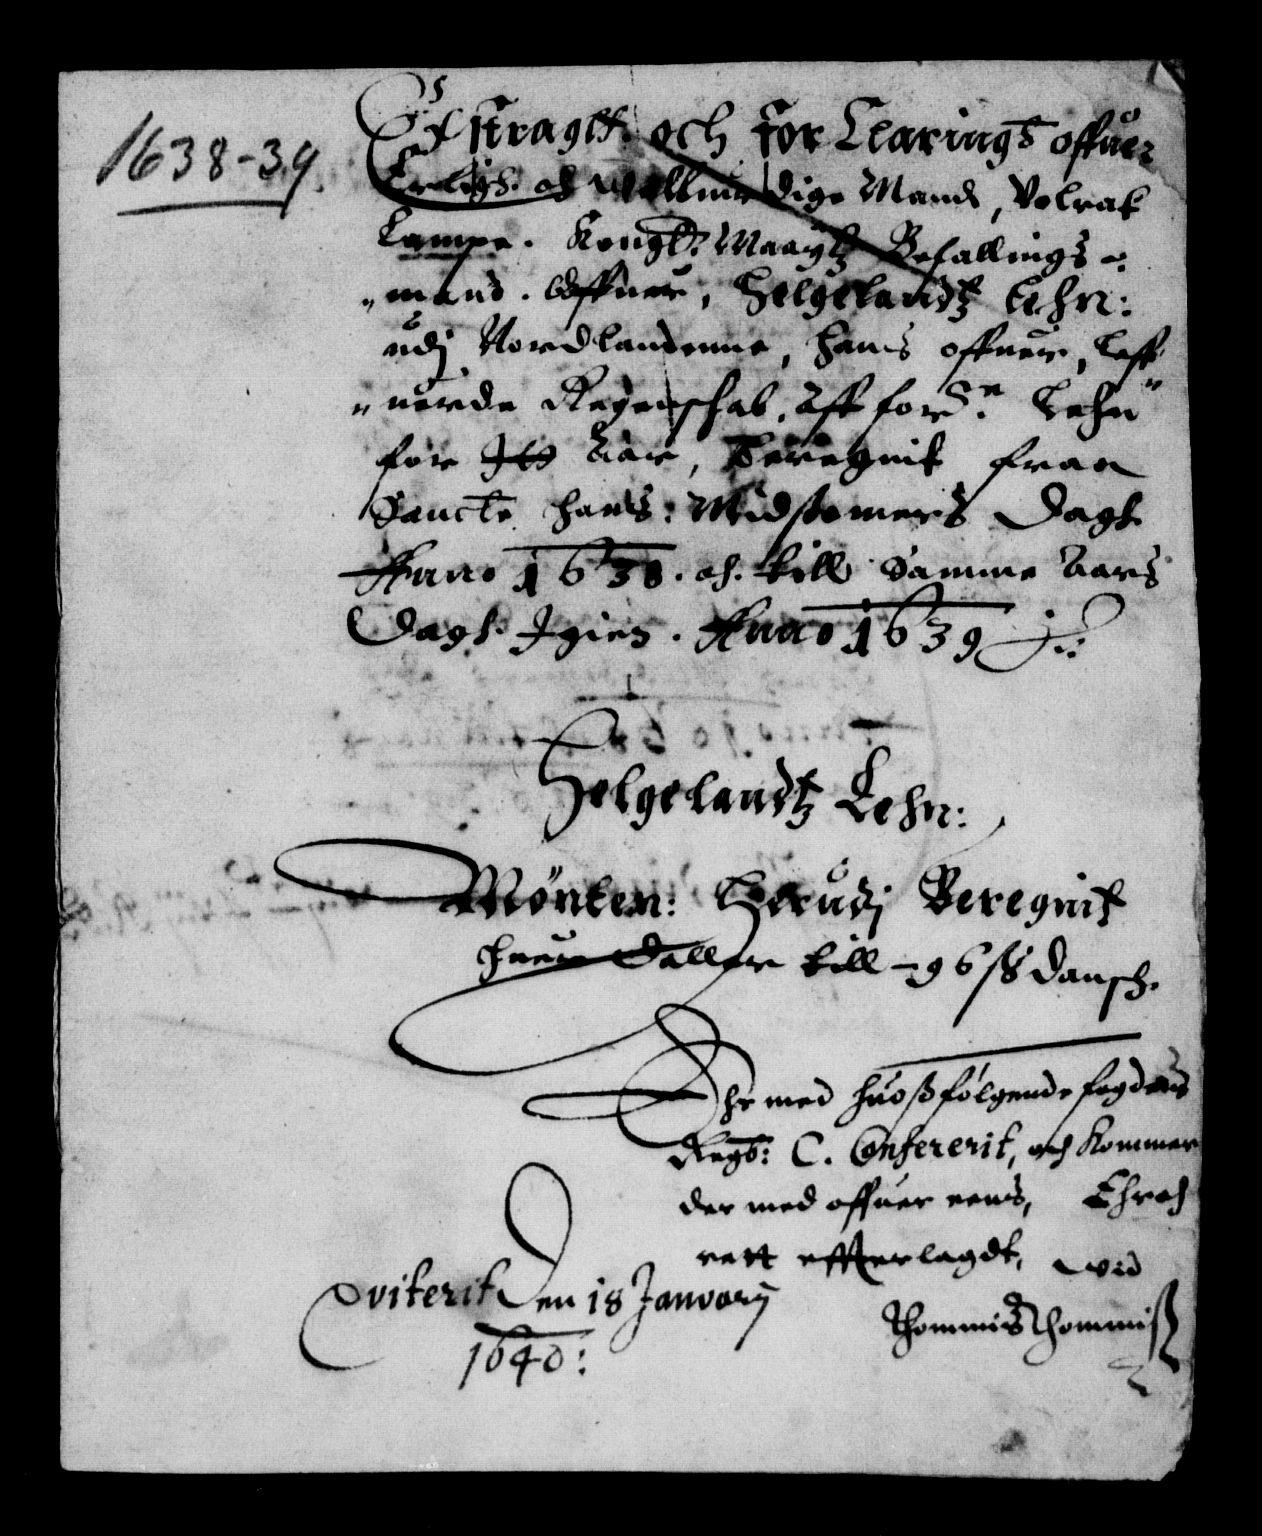 1638-39.
Extragt och forClarings offuer
Erligh. och Welburdige Mand, Volrat
Lampe. Kongl: Maaytz Befallings-
mand. Offuer, Helgelandtz Lehn:
udj Nordlandenne, hans offuer, Leff-
uerde Regenschab, Aff forne. Lehn
for It Aar, Beregnit fraa
Sancte hans: Midsomers Dagh
Anno 1638. och till Samme Aars
Dagh Igien. Anno 1639
Helgelandtz Lehn:
Mønten: Herudj Beregnit
huer Daller till - 96 sk dansch.
Ehr med huosfølgende fogdens
Regsb: C. Confererit, och Kommer
der med offuer eens, Ehr och
rett effterlagdt, ved
Thommis Thommiß
Qviterit Den 18 Januarij
1640: